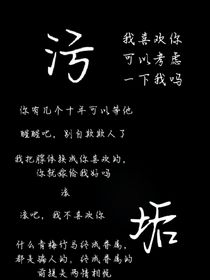 污
我喜欢你
可以考虑
一下我吗
你有几个十年可以等他
醒醒吧，别自欺欺人了
我把腺体换成你喜欢的，
你就嫁给我好吗
滚
滚吧，我不喜欢你
垢
什么青梅竹马终成眷属，
都是骗人的，终成眷属的
前提是两情相悦